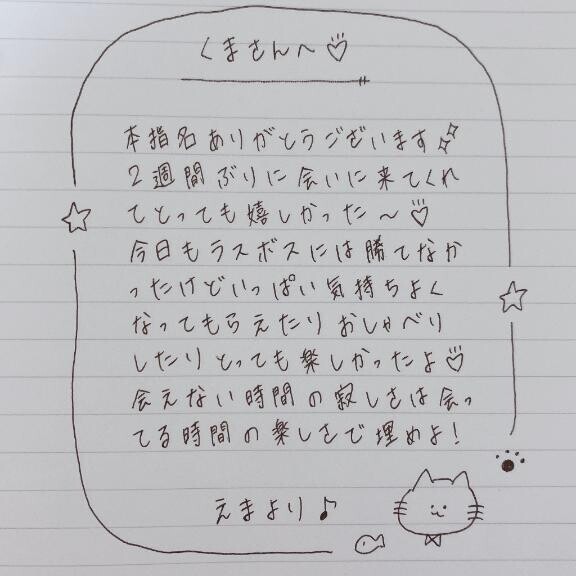 くまさんへ♡
本指名ありがとうございます
2週間ぶりに会いに来てくれ
てとっても嬉しかった〜♡
今日もラスボスには勝てなか
ったけどいっぱい気持ちよく
なってもらえたりおしゃべり
したりとっても楽しかったよ♡
会えない時間の寂しさは会っ
てる時間の楽しさで埋めよ!
えまより♪